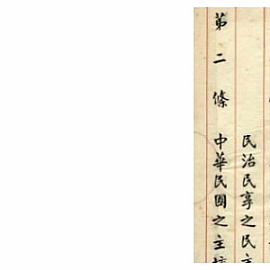 民治民享之民主
第二條 中華民國之主